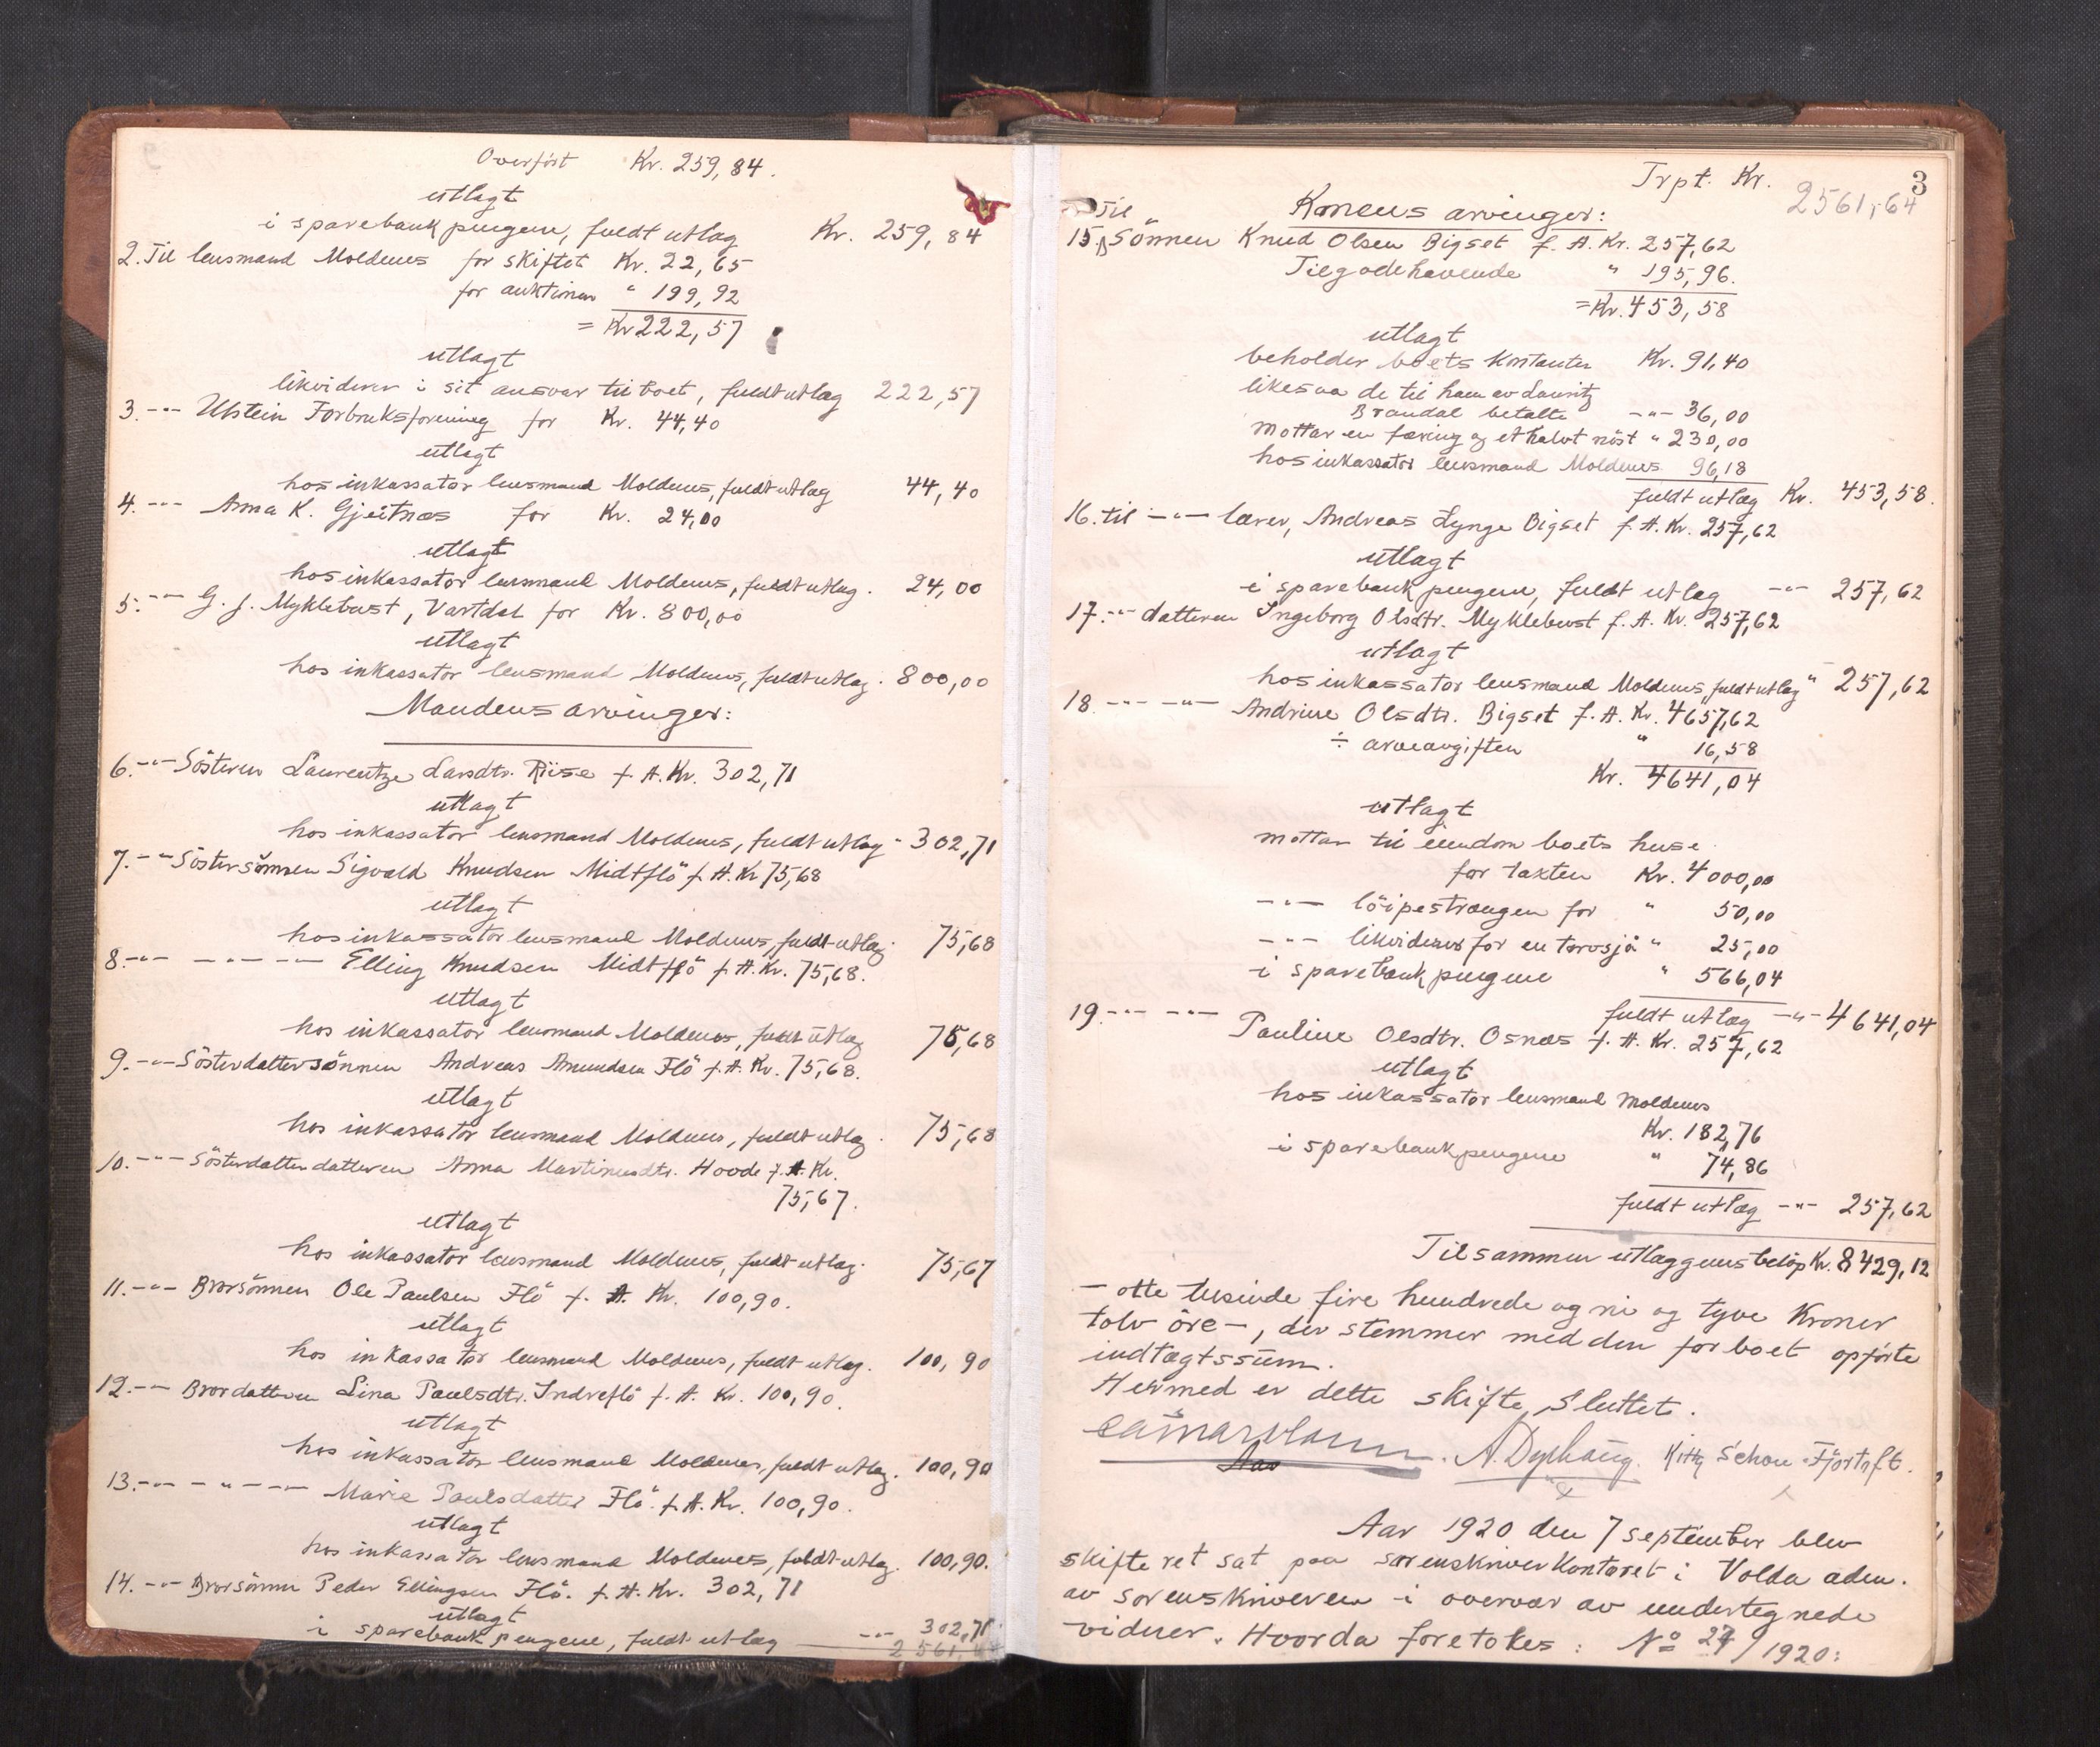 Overført Kr. 259,84.
utlagt
i sparebankpengene, fuldt utlæg Kr. 259,84
2. Til lensmand Moldenes for skiftet Kr. 22,65
for auktionen " 199,92
= Kr 222,57
utlagt
likviderer i sit ansvar til boet, fuldt utlæg 222,57
3. -"- Ulstein Forbruksforening for Kr. 44,40
utlagt
hos inkassator lensmand Moldenes, fuldt utlæg 44,40
4. -"- Anna K. Gjeitnæs for Kr. 24,00
utlagt
hos inkassator lensmand Moldenes, fuldt utlæg. 24,00
5. -"- G. J. Myklebust, Vartdal for Kr. 800,00
utlagt
hos inkassator lensmand Moldenes, fuldt utlæg. 800,00
Mandens arvinger:
6. -"- Søsteren Laurentze Larsdtr. Riise f. A. Kr. 302,71
utlagt
hos inkassator lensmand Moldenes, fuldt utlæg - 302,71
7. -"- Søstersønnen Sigvald Knudsen Midtflö f. A. Kr 75,68
utlagt
hos inkassator lensmand Moldenes, fuldt utlæg. 75,68
8. -"- -"- Elling Knudsen Midtflö f. A. Kr. 75,68.
utlagt
hos inkassator lensmand Moldenes, fuldt utlæg 75,68
9. -"- Søsterdattersønnen Andreas Amundsen Flö f. A. Kr. 75,68.
utlagt
hos inkassator lensmand Moldenes, fuldt utlæg. 75,68
10. -"- Søsterdatterdatteren Anna Martinusdtr. Hovde f. A. Kr.
75,67.
utlagt
hos inkassator lensmand Moldenes, fuldt utlæg. 75,67
11. -"- Brorsønnen Ole Paulsen Flö f. A. Kr. 100,90.
utlagt
hos inkassator lensmand Moldenes, fuldt utlæg. 100,90
12. -"- Brordatteren Lina Paulsdtr. Indreflö f. A. Kr. 100,90.
utlagt
hos inkassator lensmand Moldenes, fuldt utlæg. 100,90
13. -"- -"- Marie Paulsdatter Flö. f. A. Kr. 100,90.
utlagt
hos inkassator lensmand Moldenes, fuldt utlæg. 100,90.
14. -"- Brorsønnen Peder Ellingsen Flö. f. A. Kr. 302,71
utlagt
i sparebankpengene, fuldt utlæg -"- 302,71
2561,64
3
Trpt. Kr. 2561,64
Til Konens arvinger:
15. Sønnen Knud Olsen Bigset f. A. Kr. 257,62
Tilgodehavende " 195,96.
= Kr. 453,58
utlagt
beholder boets kontanter Kr. 91,40
likesaa de til ham av Lauritz
Brandal betalte -"- 36,00
mottar en færing og et halvt nöst " 230,00
hos inkassator lensmand Moldenes 96,18
fuldt utlæg Kr. 453,58.
16. til -"- lærer, Andreas Lynge Bigset f. A. Kr. 257,62
utlagt
i sparebankpengene, fuldt utlæg -"- 257,62
17. -"- datteren Ingeborg Olsdtr. Myklebust f. A. Kr. 257,62
utlagt
hos inkassator lensmand Moldenes, fuldt utlæg " 257,62
18. -"- -"- Andrine Olsdtr. Bigset f. A. Kr. 4657,62
÷ arveavgiften " 16,58
Kr. 4641,04
utlagt
mottar til eiendom boets huse
for taxten Kr. 4000,00
-"- löipestrængen for " 50,00
-"- likviderer for en torvsjå " 25,00
i sparebankpengene " 566,04
fuldt utlæg -"- 4641,04
19. -"- -"- Pauline Olsdtr. Osnæs f. A. Kr. 257,62
utlagt
hos inkassator lensmand Moldenes
Kr. 182,76
i sparebankpengene " 74,86
fuldt utlæg -"- 257,62
Tilsammen utlæggenes beløp Kr. 8429,12
- otte tusinde fire hundrede og ni og tyve Kroner
tolv öre -, der stemmer med den for boet opførte
indtægtssum.
Hermed er dette skifte sluttet.
A. Dyshaug. Kitty Schou Fjörtoft.
Aar
Aar 1920 den 7 september blev
skifteret sat paa sorenskriverkontoret i Volda adm.
av sorenskriveren i overvær av undertegnede
vidner. Hvorda foretokes: No 24/1920: